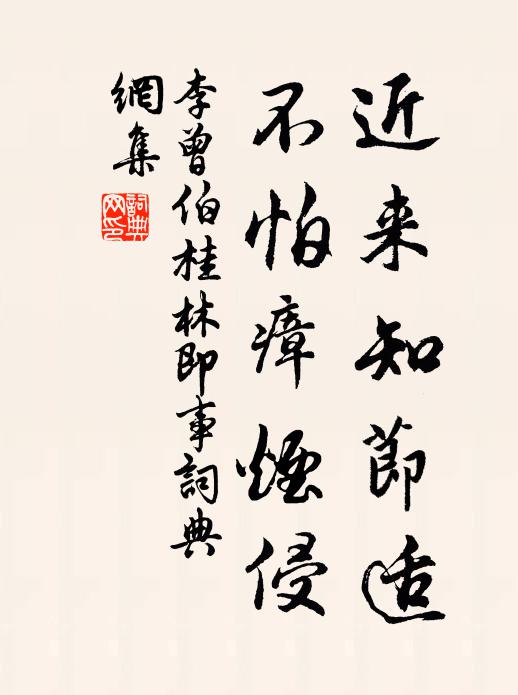 近来知節适
不怕瘴煙侵
李曾伯桂林即事詞典
網集
詞典
网印